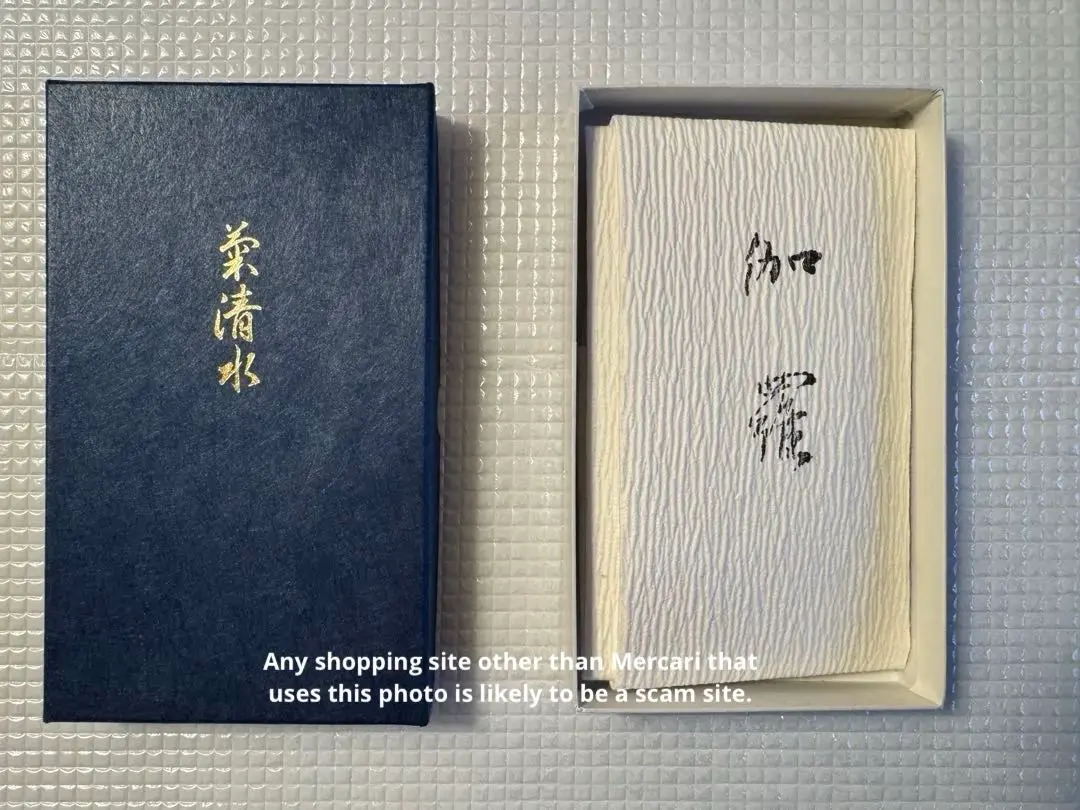 菊清水
伽
羅
Any shopping site other than Mercari that
uses this photo is likely to be a scam site.